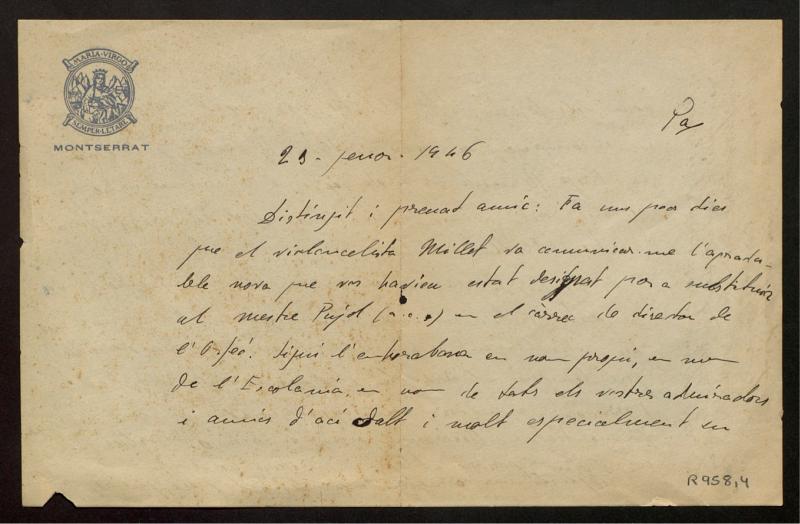 MARIA·VIRGO
SEMPER·LETARE
MONTSERRAT
Pax
23 - gener - 1946
Distingit i preuat amic: Fa uns pocs dies
que el violoncelista Millet va comunicar-me l'agrada-
ble nova que vos havíeu estat designat per a substituir
al mestre Pujol (a.c.s) en el càrrec de director de
l'Orfeó. Sigui l'enhorabona en nom propi, en nom
de l'Escolania, en nom de tots els vostres admiradors
i amics d'ací dalt i molt especialment en
R958,4